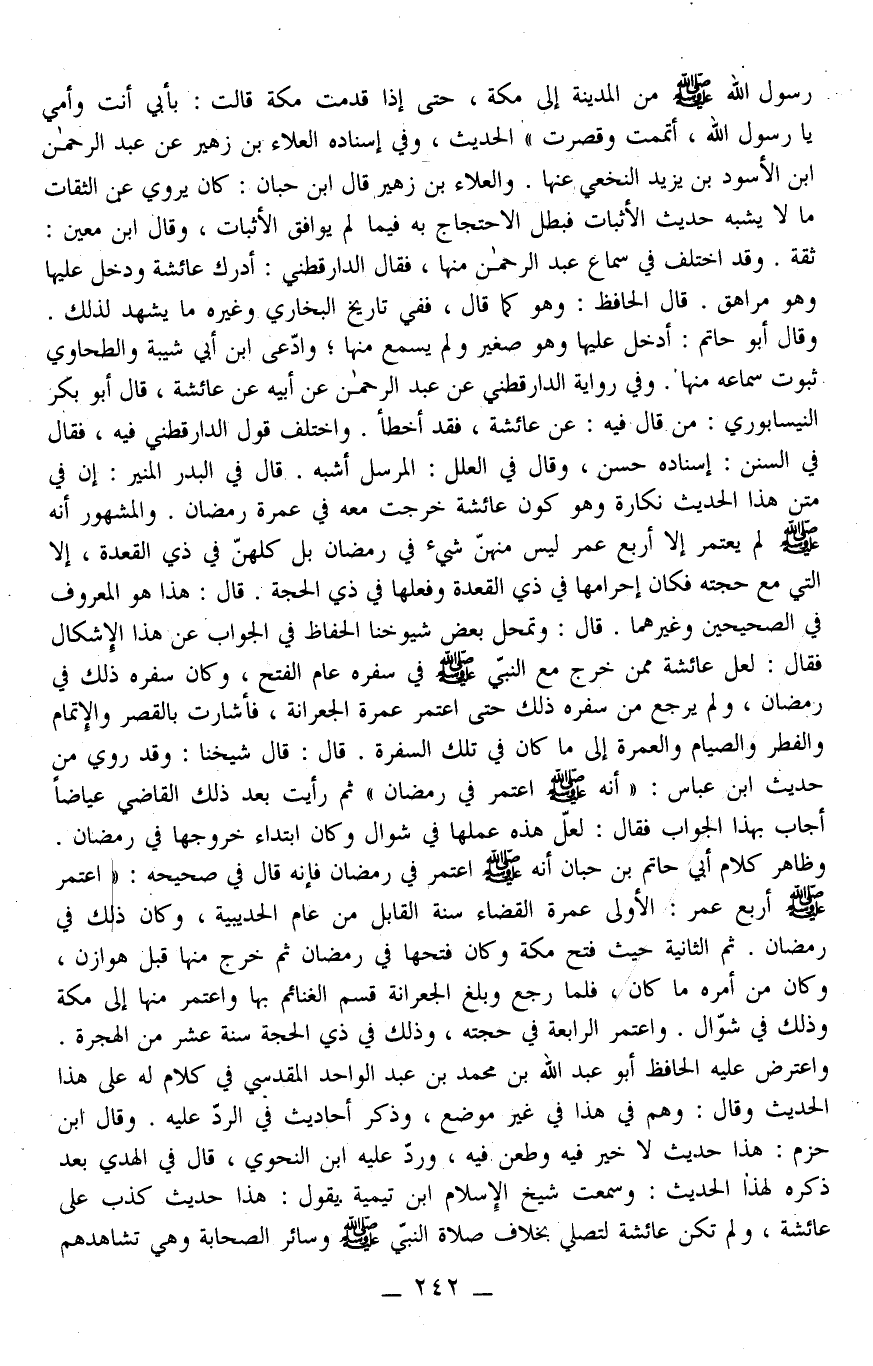 رسول الله ﷺ من المدينة إلى مكة ، حتى إذا قدمت مكة قالت : بأبي أنت وأمي
يا رسول الله ، أتممت وقصرت » الحديث ، وفي إسناده العلاء بن زهير عن عبد الرحمٰن
ابن الأسود بن يزيد النخعي عنها . والعلاء بن زهير قال ابن حبان : كان يروي عن الثقات
ما لا يشبه حديث الأثبات فبطل الاحتجاج به فيما لم يوافق الأثبات ، وقال ابن معين :
ثقة . وقد اختلف في سماع عبد الرحمٰن منها ، فقال الدارقطني : أدرك عائشة ودخل عليها
وهو مراهق . قال الحافظ : وهو كما قال ، ففي تاريخ البخاري وغيره ما يشهد لذلك .
وقال أبو حاتم : أدخل عليها وهو صغير ولم يسمع منها ؛ وادّعى ابن أبي شيبة والطحاوي
ثبوت سماعه منها . وفي رواية الدارقطني عن عبد الرحمٰن عن أبيه عن عائشة ، قال أبو بكر
النيسابوري : من قال فيه : عن عائشة ، فقد أخطأ . واختلف قول الدارقطني فيه ، فقال
في السنن : إسناده حسن ، وقال في العلل : المرسل أشبه . قال في البدر المنير : إن في
متن هذا الحديث نكارة وهو كون عائشة خرجت معه في عمرة رمضان . والمشهور أنه
ﷺ لم يعتمر إلا أربع عمر ليس منهنّ شيء في رمضان بل كلهنّ في ذي القعدة ، إلا
التي مع حجته فكان إحرامها في ذي القعدة وفعلها في ذي الحجة . قال : هذا هو المعروف
في الصحيحين وغيرهما . قال : وتمحل بعض شيوخنا الحفاظ في الجواب عن هذا الإشكال
فقال : لعل عائشة ممن خرج مع النبيّ ﷺ في سفره عام الفتح ، وكان سفره ذلك في
رمضان ، ولم يرجع من سفره ذلك حتى اعتمر عمرة الجعرانة ، فأشارت بالقصر والإتمام
والفطر والصيام والعمرة إلى ما كان في تلك السفرة . قال : قال شيخنا : وقد روي من
حديث ابن عباس : « أنه ﷺ اعتمر في رمضان » ثم رأيت بعد ذلك القاضي عياضاً
أجاب بهذا الجواب فقال : لعلّ هذه عملها في شوال وكان ابتداء خروجها في رمضان .
وظاهر كلام أبي حاتم بن حبان أنه ﷺ اعتمر في رمضان فإنه قال في صحيحه : « اعتمر
ﷺ أربع عمر : الأولى عمرة القضاء سنة القابل من عام الحديبية ، وكان ذلك في
رمضان . ثم الثانية حيث فتح مكة وكان فتحها في رمضان ثم خرج منها قبل هوازن ،
وكان من أمره ما كان ، فلما رجع وبلغ الجعرانة قسم الغنائم بها واعتمر منها إلى مكة
وذلك في شوّال . واعتمر الرابعة في حجته ، وذلك في ذي الحجة سنة عشر من الهجرة .
واعترض عليه الحافظ أبو عبد الله بن محمد بن عبد الواحد المقدسي في كلام له على هذا
الحديث وقال : وهم في هذا في غير موضع ، وذكر أحاديث في الردّ عليه . وقال ابن
حزم : هذا حديث لا خير فيه وطعن فيه ، وردّ عليه ابن النحوي ، قال في الهدي بعد
ذكره لهذا الحديث : وسمعت شيخ الإسلام ابن تيمية يقول : هذا حديث كذب على
عائشة ، ولم تكن عائشة لتصلي بخلاف صلاة النبيّ ﷺ وسائر الصحابة وهي تشاهدهم
— ٢٤٢ —